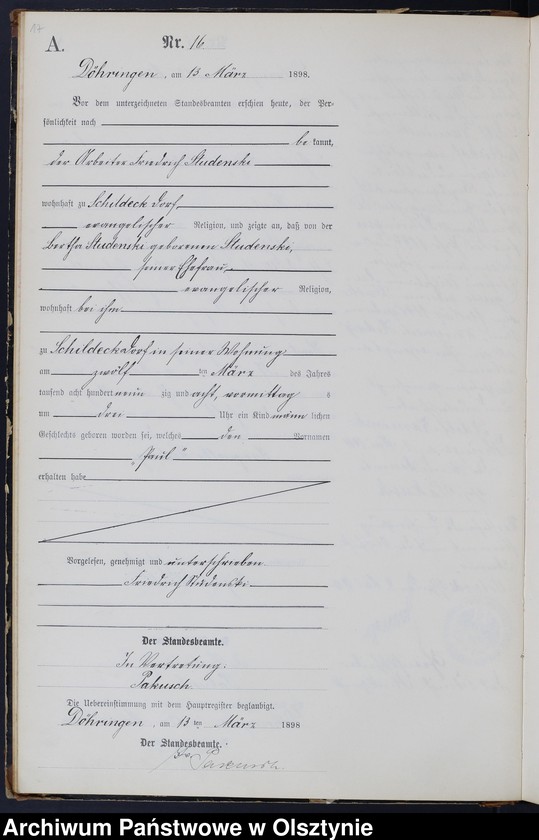 17
A.
Nr. 16
Döhringen, am 13 März 1898.
Vor dem unterzeichneten Standesbeamten erschien heute, der Per-
sönlichkeit nach
be kannt,
der Arbeiter Friedrich Studenski
wohnhaft zu Schildeck Dorf,
evangelischer Religion, und zeigte an, daß von der
Bertha Studenski geborenen Studenski,
seiner Ehefrau,
evangelischer Religion,
wohnhaft bei ihm
zu Schildeck Dorf in seiner Wohnung
am zwölf ten März des Jahres
tausend acht hundert neun zig und acht, vormittag s
um drei Uhr ein Kind männ lichen
Geschlechts geboren worden sei, welches den Vornamen
„Paul“
erhalten habe
Vorgelesen, genehmigt und unterschrieben
Friedrich Studenski
Der Standesbeamte.
In Vertretung:
Pakusch.
Die Uebereinstimmung mit dem Hauptregister beglaubigt.
Döhringen, am 13 ten März 1898
Der Standesbeamte.
Archiwum Państwowe w Olsztynie